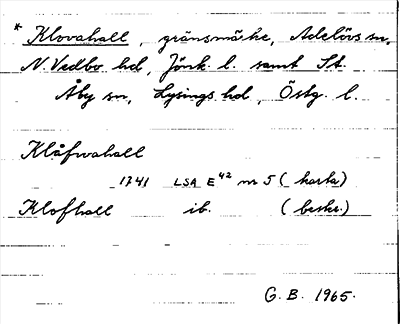 * Klovahall, gränsmärke, Adelövs sn,
N. Vedbo hd, Jönk. l. samt St.
Åby sn, Lysings hd, Östg. l.
Klåfwahall
1741 LSA E⁴² nr 5 (karta)
Klofhall ib. (beskr.)
G. B. 1965.